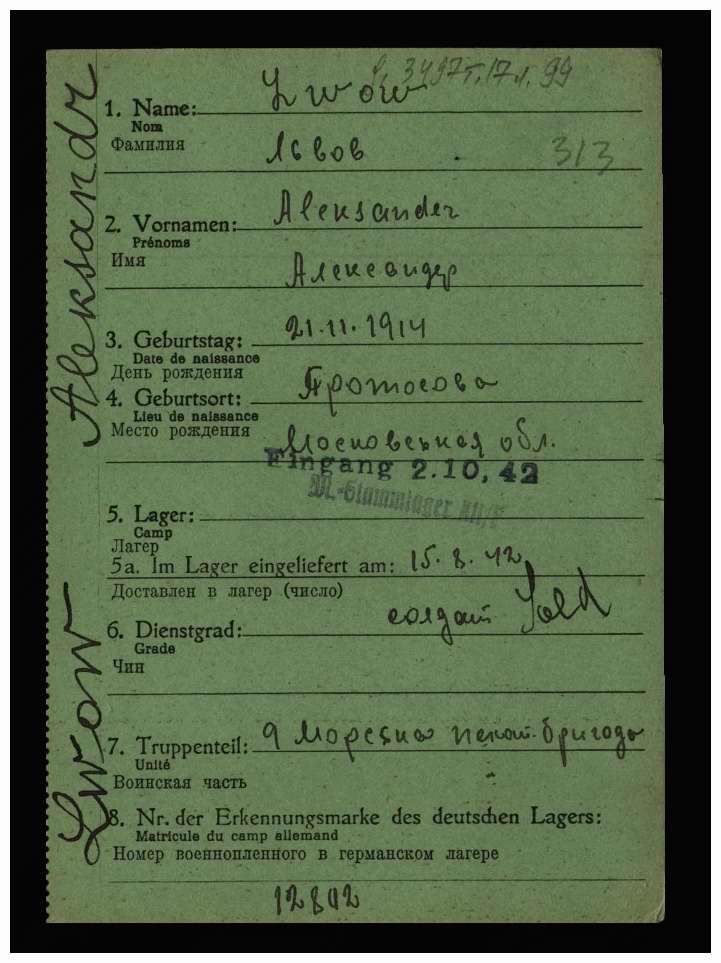 3497т.17л. 99
1. Name: Lwow
Nom
Фамилия Львов
313
2. Vornamen: Aleksander
Prénoms
Имя Александр
3. Geburtstag: 21.11.1914
Date de naissance
День рождения
4. Geburtsort: Протосово
Lieu de naissance
Место рождения Московская обл.
Eingang 2.10.42
M.-Stammlager
5. Lager:
Camp
Лагер
5a. Im Lager eingeliefert am: 15.8.42
Доставлен в лагер (число)
6. Dienstgrad: солдат Sold
Grade
Чин
7. Truppenteil: 9 Морська пехот. бригада
Unité
Воинская часть
8. Nr. der Erkennungsmarke des deutschen Lagers:
Matricule du camp allemand
Номер военнопленного в германском лагере
12802
Lwow Aleksandr